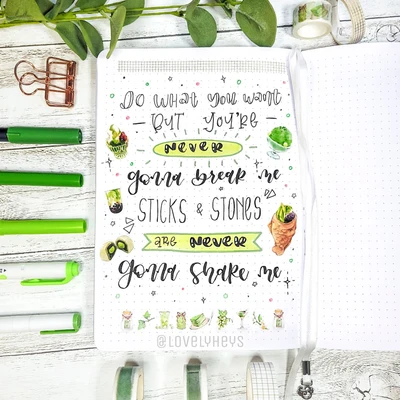 DO WHAT YOU WANT
- BUT YOU'RE -
NEVER
gonna break me
STICKS & STONES
ARE NEVER
gonna shake me
@LOVELYHEYS